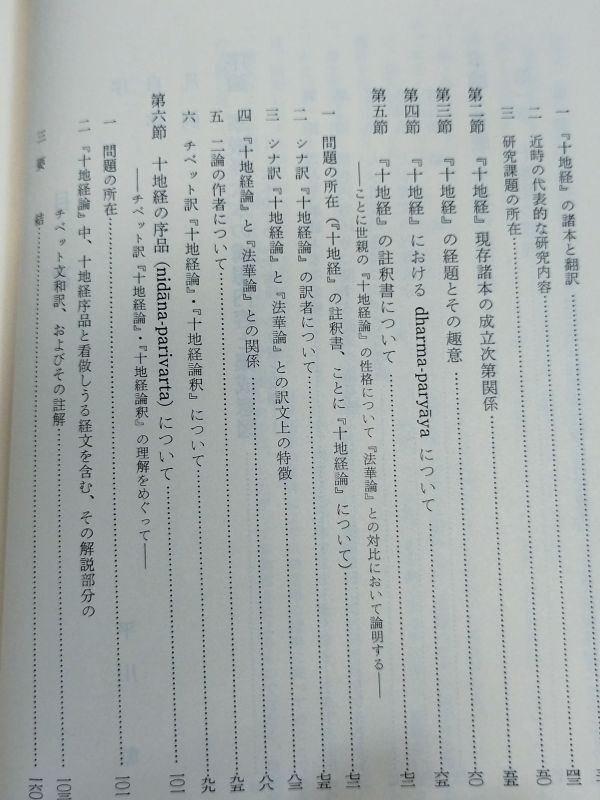 一 『十地経』の諸本と翻訳……四三
二 近時の代表的な研究内容……五〇
三 研究課題の所在……五五
第二節 『十地経』現存諸本の成立次第関係……六〇
第三節 『十地経』の経題とその趣意……六五
第四節 『十地経』における dharma-paryāya について……七二
第五節 『十地経』の註釈書について……七二
――ことに世親の『十地経論』の性格について『法華論』との対比において論明する――
一 問題の所在(『十地経』の註釈書、ことに『十地経論』について)……七五
二 シナ訳『十地経論』の訳者について……八三
三 シナ訳『十地経論』と『法華論』との訳文上の特徴……八八
四 『十地経論』と『法華論』との関係……九五
五 二論の作者について……九九
六 チベット訳『十地経論』・『十地経論釈』について……
第六節 十地経の序品 (nidāna-parivarta) について……一〇一
――チベット訳『十地経論』・『十地経論釈』の理解をめぐって――
一 問題の所在……一〇一
二 『十地経論』中、十地経序品と看做しうる経文を含む、その解説部分の
チベット文和訳、およびその註解……一〇三
三 要 結……一六〇